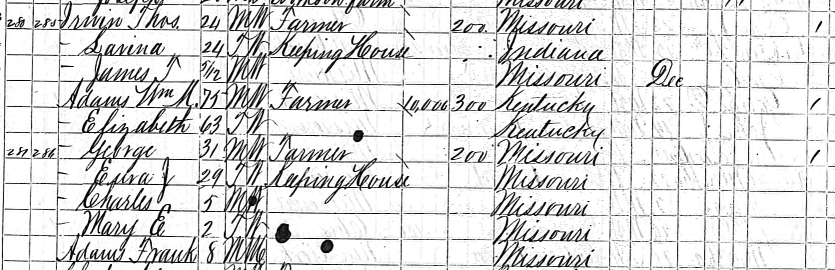 Missouri
280 285 Irvin Thos. 24 M W Farmer 200 Missouri 1
– Lavina 24 F W Keeping House Indiana
– James 5/12 M W Missouri Dec
Adams Wm 75 M W Farmer 10,000 300 Kentucky 1
– Elizabeth 63 F W Kentucky
281 286 – George 31 M W Farmer 200 Missouri 1
– J 29 F W Keeping House Missouri
– Charles 5 M W Missouri
– Mary E 2 F W Missouri
Adams Frank 8 M Missouri